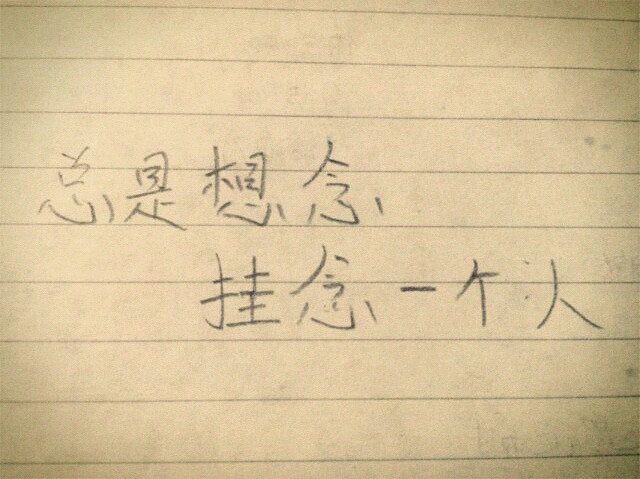 总是想念
挂念一个人